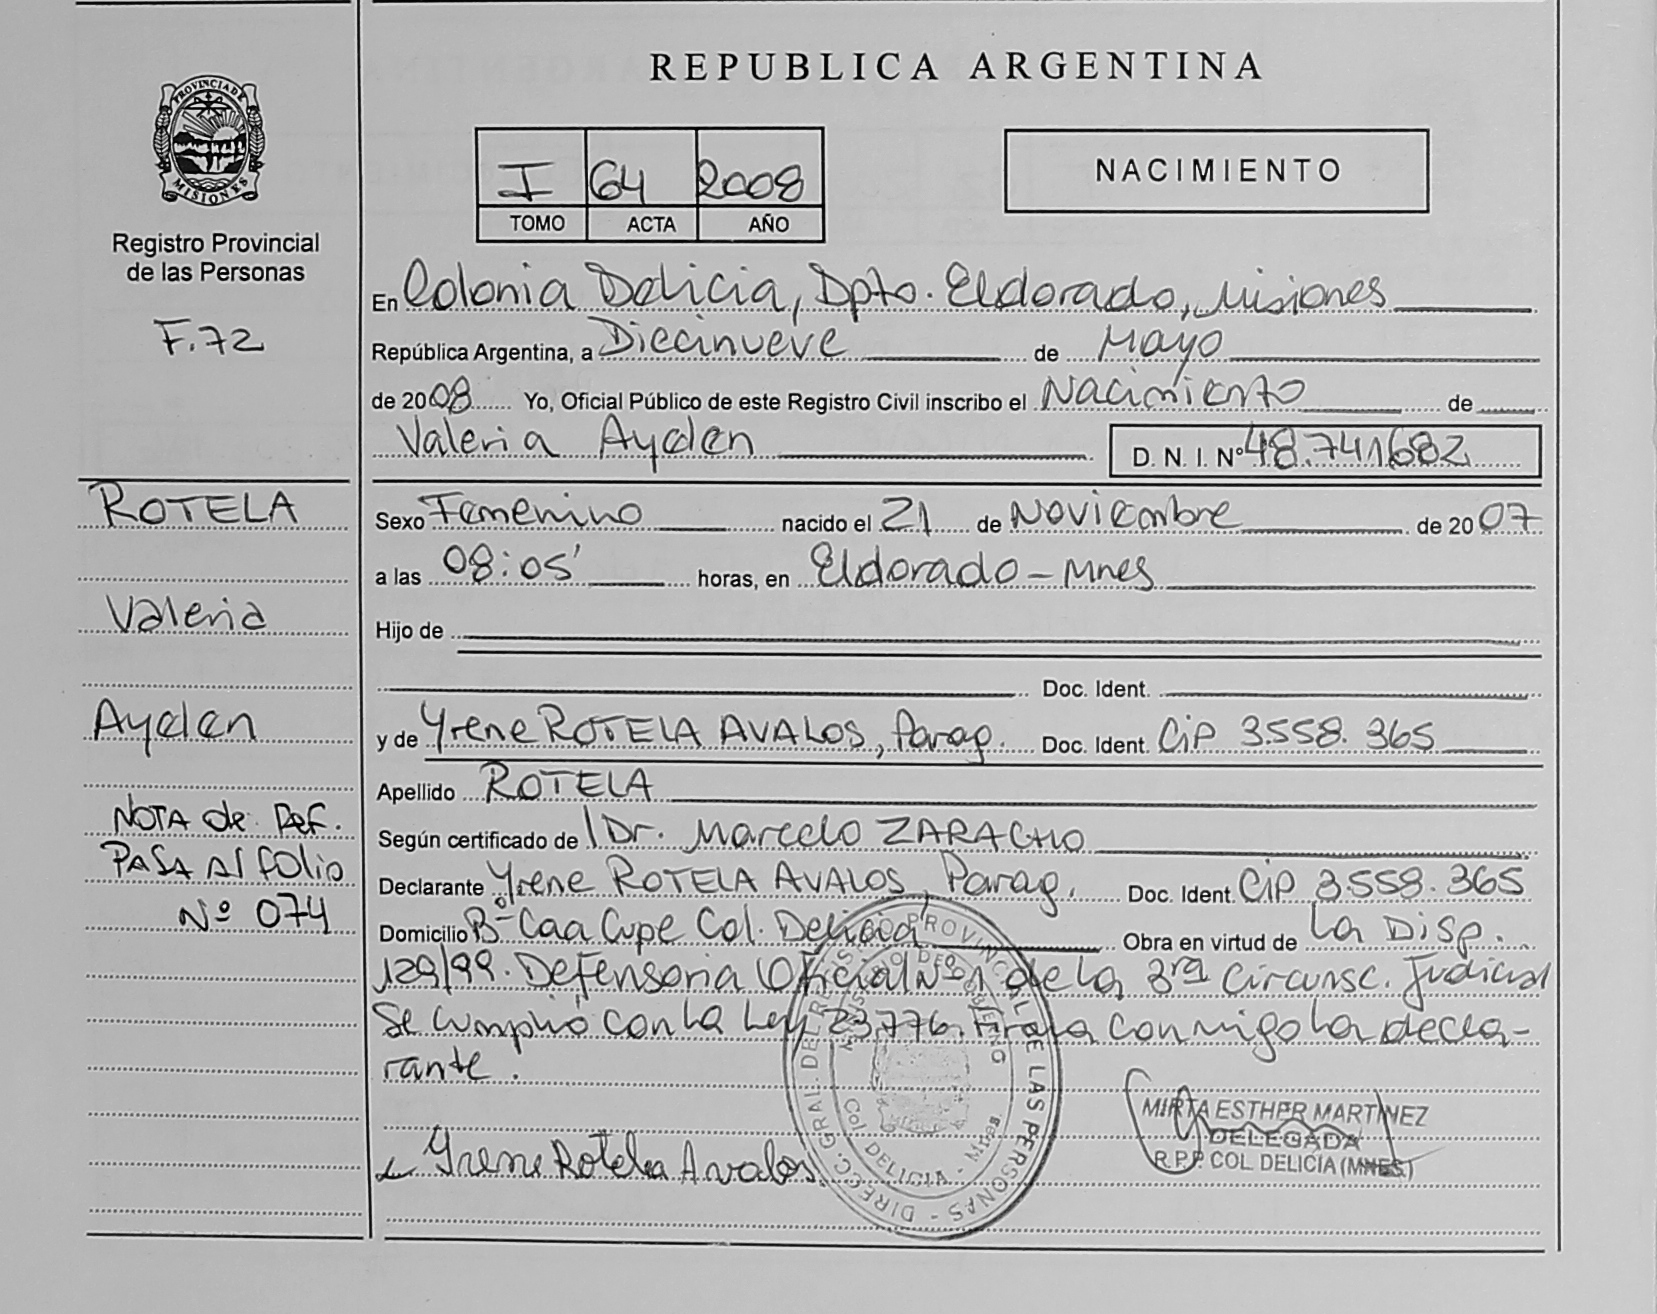 REPUBLICA ARGENTINA
PROVINCIA DE
MISIONES
Registro Provincial
de las Personas
F.72
I 64 2008
TOMO ACTA AÑO
NACIMIENTO
En Colonia Delicia, Dpto. Eldorado, Misiones
República Argentina, a Diecinueve de Mayo
de 2008 Yo, Oficial Público de este Registro Civil inscribo el Nacimiento de
Valeria Ayelen
D. N. I. Nº 48.741682
ROTELA
Valeria
Ayelen
NOTA de Ref.
PASA Al folio
Nº 074
Sexo Femenino nacido el 21 de Noviembre de 2007
a las 08:05' horas, en Eldorado - Mnes
Hijo de
Doc. Ident.
y de Yrene ROTELA AVALOS, Parag. Doc. Ident. CiP 3.558.365
Apellido ROTELA
Según certificado de Dr. Marcelo ZARACHO
Declarante Yrene ROTELA AVALOS, Parag. Doc. Ident. CiP 3.558.365
Domicilio Bº Caa Cupe Col. Delicia Obra en virtud de La Disp.
129/99. Defensoria Oficial Nº 1 de la 3ra Circunsc. Judicial
Se cumplio con la Ley 23.776. Firma conmigo la decla-
rante.
Yrene Rotela Avalos
MIRTA ESTHER MARTINEZ
DELEGADA
R.P.P COL. DELICIA (MNES)
DIRECC. GRAL. DEL REGISTRO PROVINCIAL DE LAS PERSONAS
Col. DELICIA - Mnes.